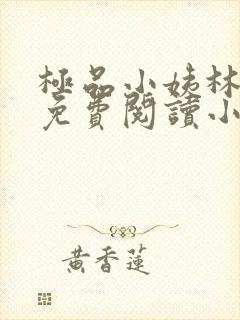 極品小姨林
免費閱讀小
黃香蓮